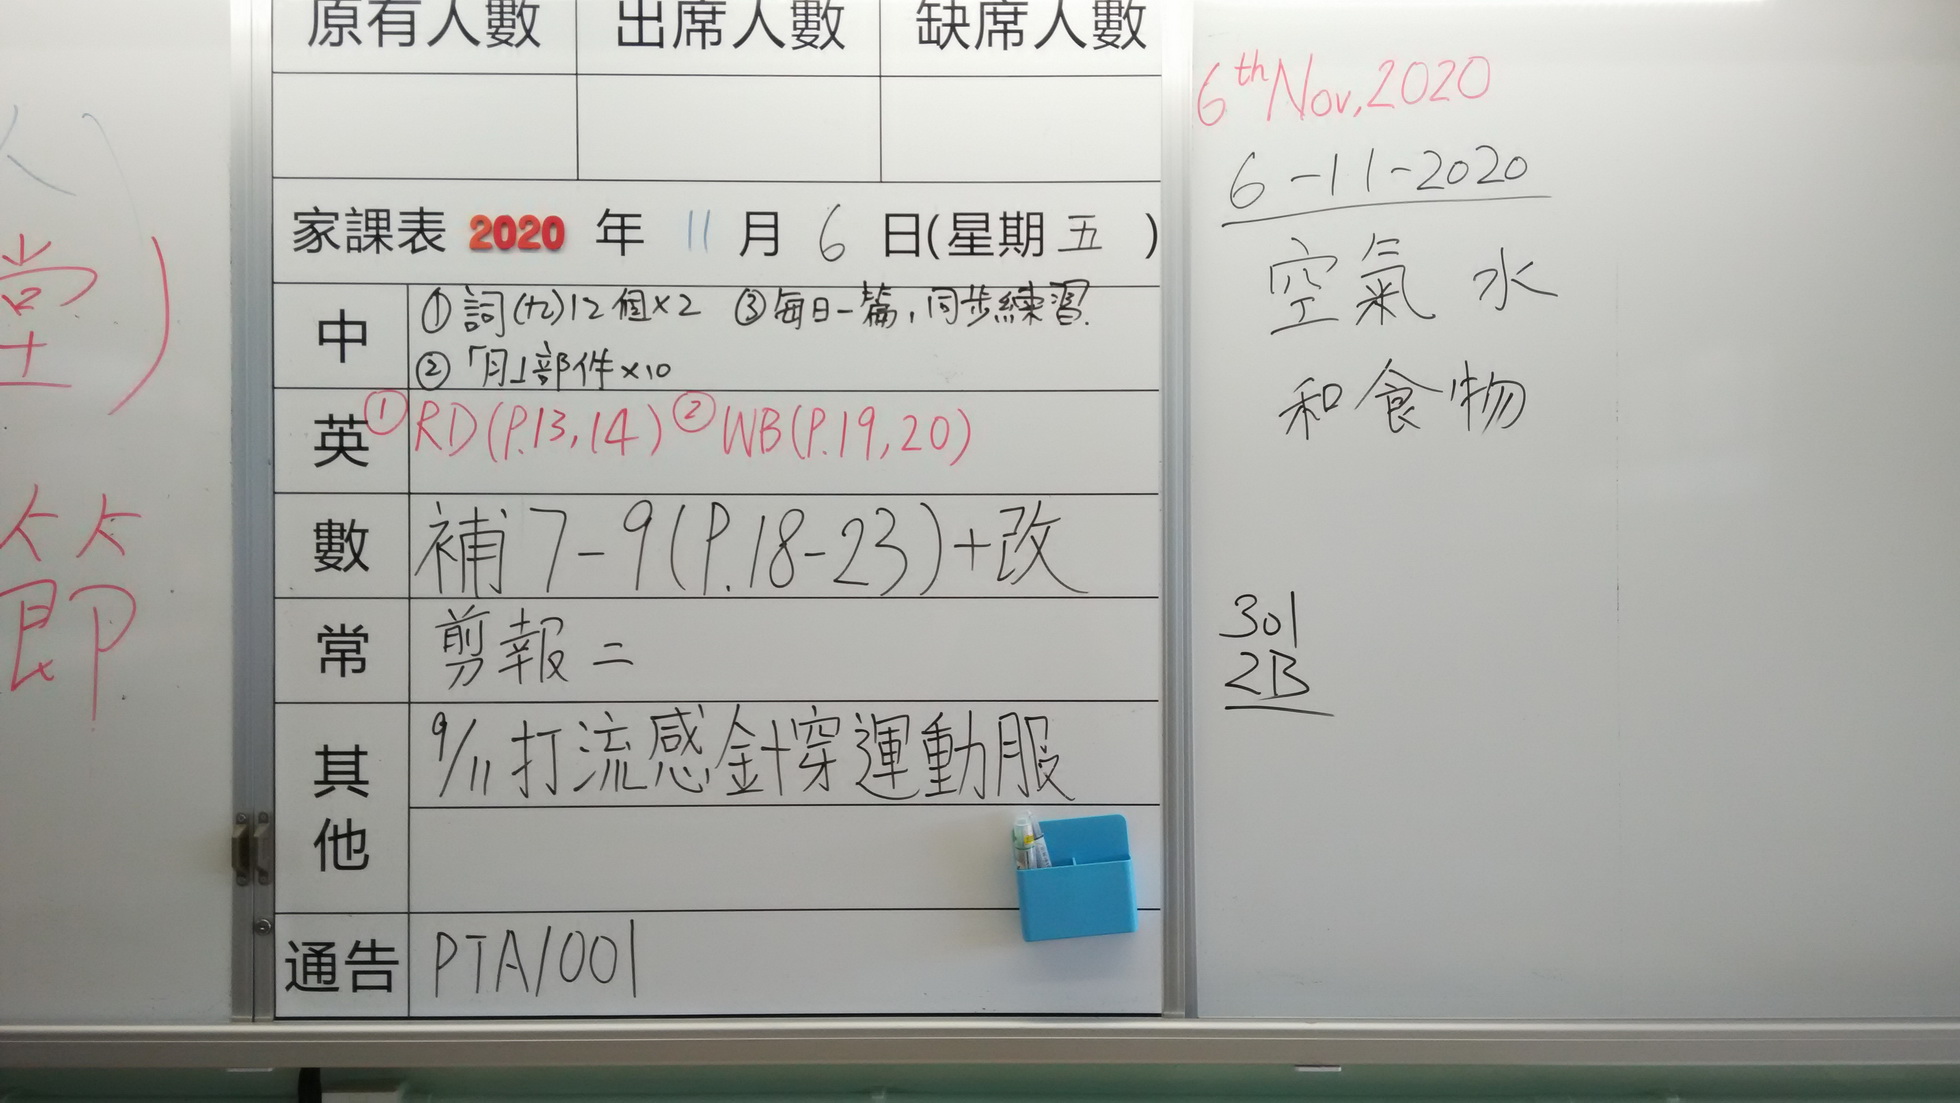 原有人數 出席人數 缺席人數
家課表 2020 年 11 月 6 日(星期五)
中 ①詞(九)12個×2 ③每日一篇,同步練習.
②「月」部件×10
英 ①RD(P.13,14) ②WB(P.19,20)
數 補7-9(P.18-23)+改
常 剪報二
其他 9/11打流感針穿運動服
通告 PTA/001
6th Nov,2020
6-11-2020
空氣 水
和食物
301
2B
堂)
節